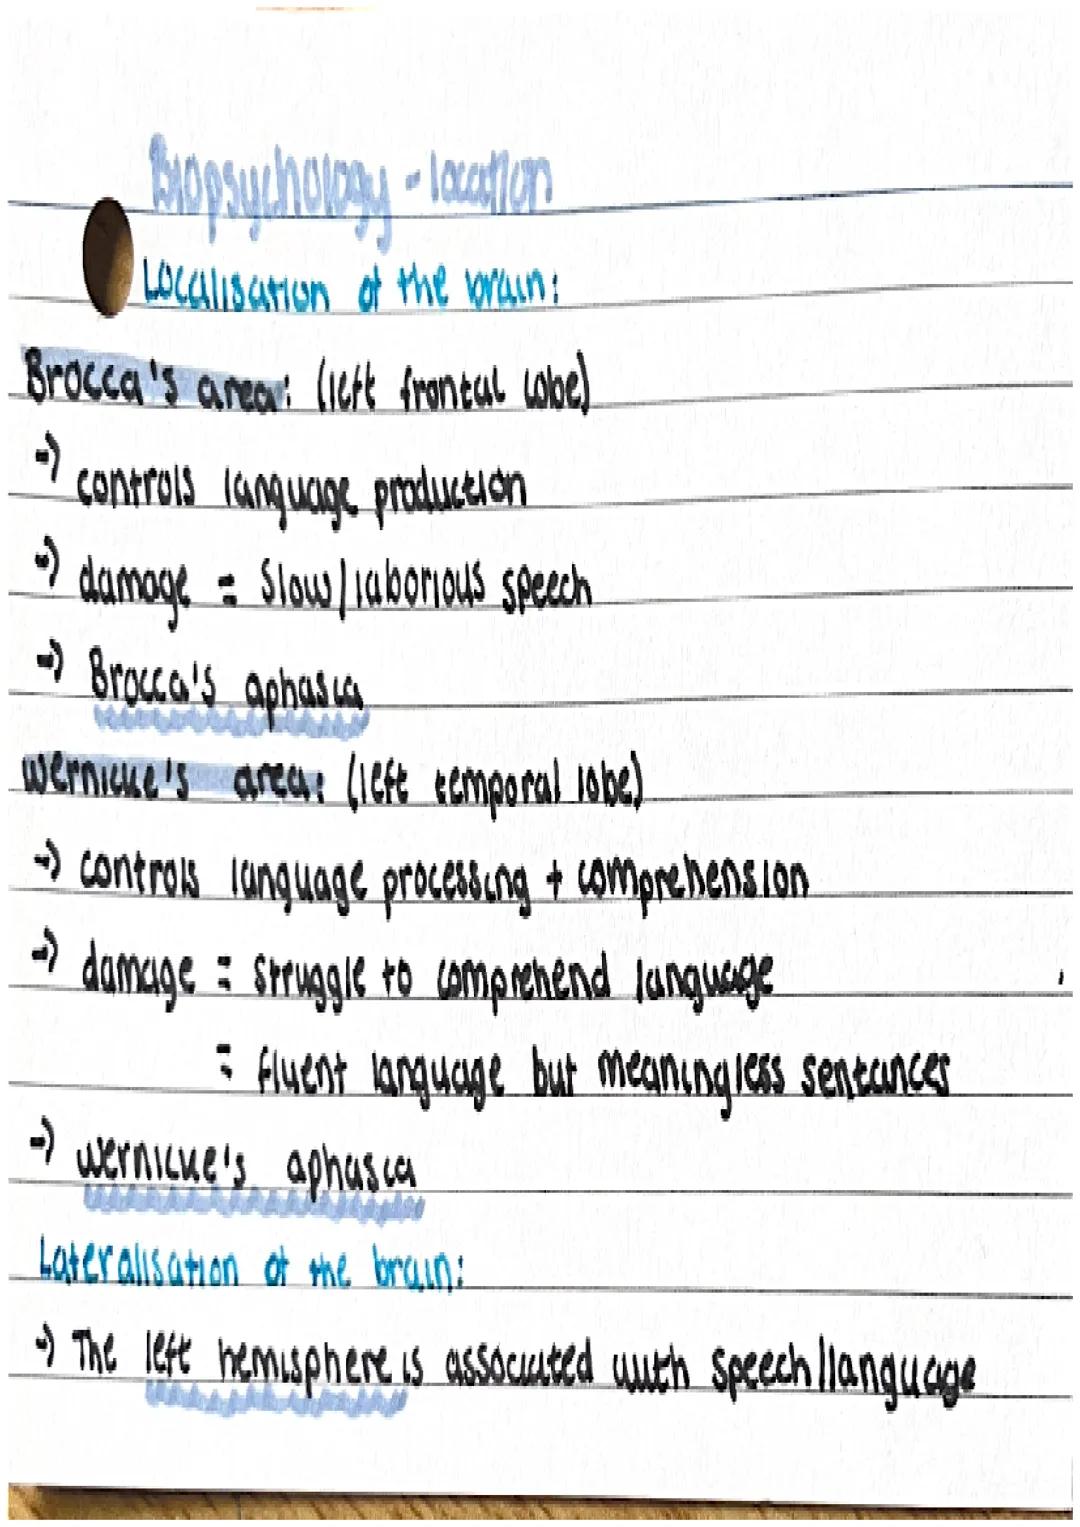 Biopsychology - location
Localisation of the brain:
Brocca's area: (left frontal lobe)
→ controls language production
→ damage = slow/laborious speech
→ Brocca's aphasia
wernicke's area: (left temporal lobe)
→ controls language processing + comprehension
→ damage = struggle to comprehend language
= fluent language but meaningless sentances
→ wernicke's aphasia
Lateralisation of the brain:
→ The left hemisphere is associated with speech/language